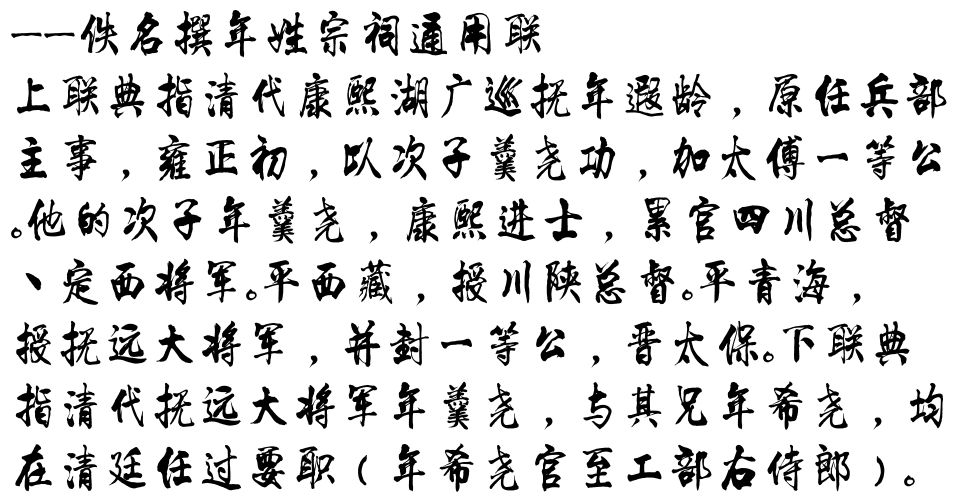 ——佚名撰年姓宗祠通用联
上联典指清代康熙湖广巡抚年遐龄，原任兵部
主事，雍正初，以次子羹尧功，加太傅一等公
。他的次子年羹尧，康熙进士，累官四川总督
、定西将军。平西藏，授川陕总督。平青海，
授抚远大将军，并封一等公，晋太保。下联典
指清代抚远大将军年羹尧，与其兄年希尧，均
在清廷任过要职（年希尧官至工部右侍郎）。